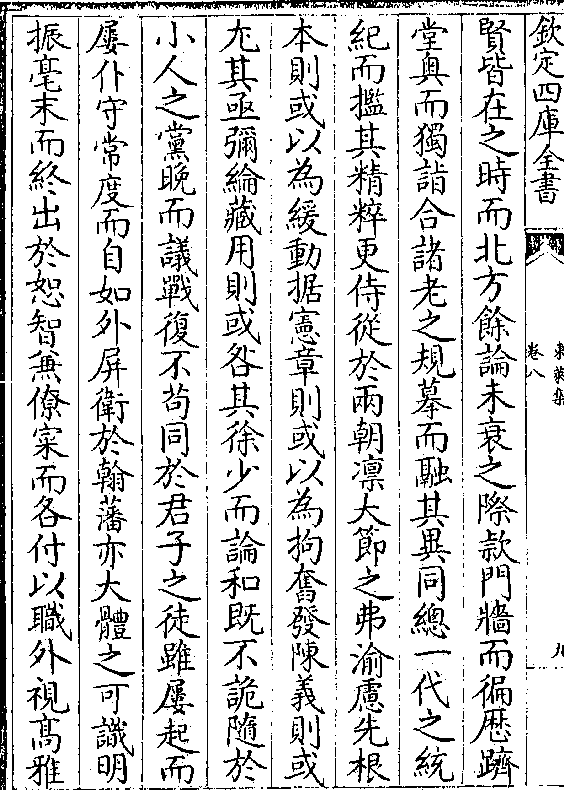 欽定四庫全書
東萊集
卷八
九
賢皆在之時而北方餘論未衰之際款門牆而徧歴躋
堂奥而獨詣合諸老之規摹而融其異同總一代之統
紀而攬其精粹更侍從於兩朝凛大節之弗渝慮先根
本則或以為緩動据憲章則或以為拘奮發陳義則或
尤其亟彌綸藏用則或咎其徐少而論和既不詭隨於
小人之黨晩而議戰復不苟同於君子之徒雖屢起而
屢仆守常度而自如外屏衛於翰藩亦大體之可識明
振毫末而終出於恕智兼僚寀而各付以職外視髙雅